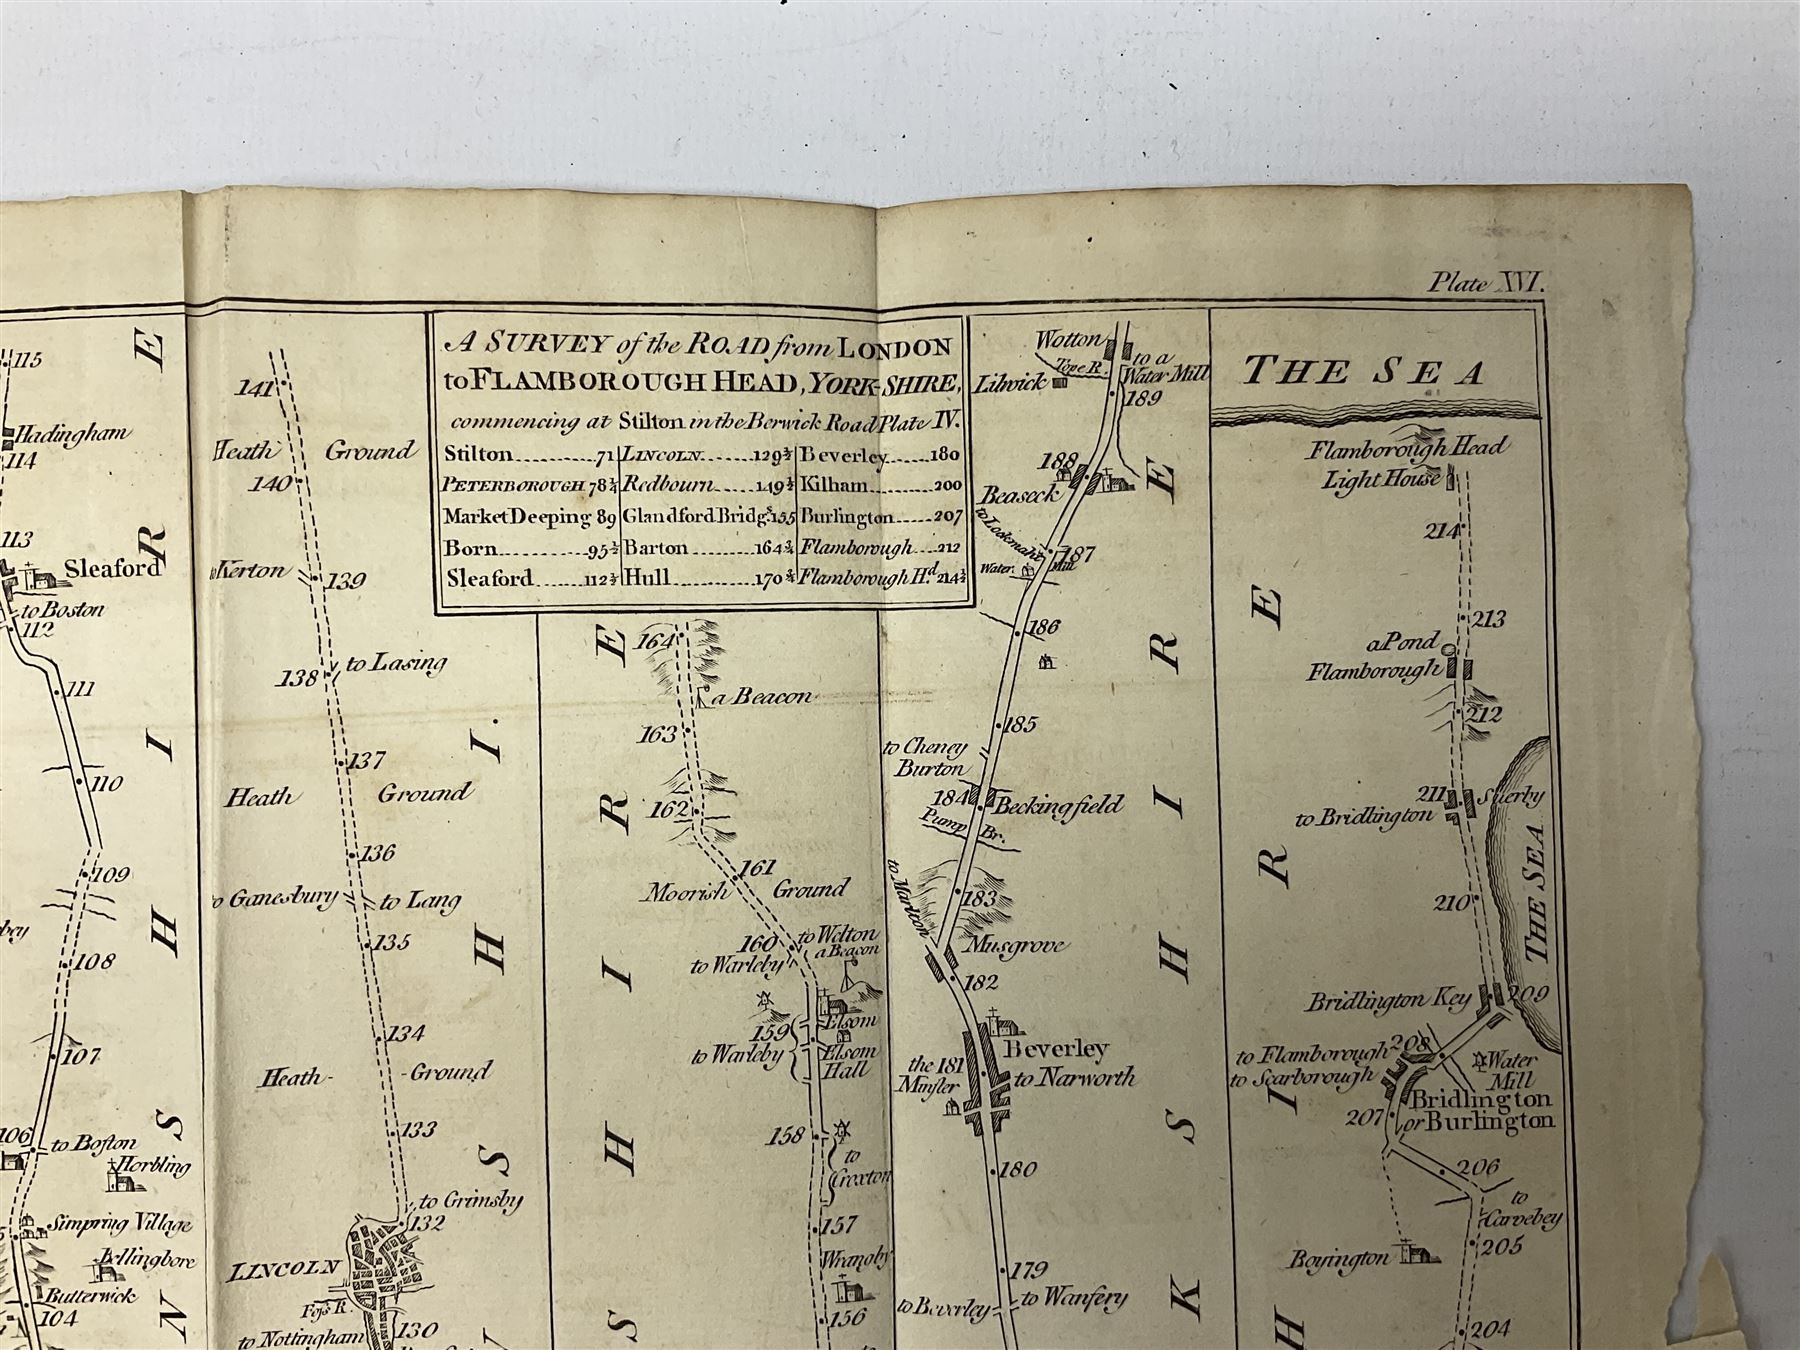 Plate XVI.
A SURVEY of the ROAD from LONDON
to FLAMBOROUGH HEAD, YORK-SHIRE,
commencing at Stilton in the Berwick Road Plate IV.
Stilton............71 LINCOLN......129½ Beverley......180
PETERBOROUGH 78¼ Redbourn.....149½ Kilham..........200
Market Deeping 89 Glandford Bridgs. 155 Burlington.....207
Born............95½ Barton..........164¾ Flamborough....212
Sleaford.......112½ Hull............170¾ Flamborough Hd. 214½
115
Hadingham
114
113
Sleaford
to Boston
112
111
110
109
108
107
106
to Boston
Horbling
Simpring Village
Bellingbore
Butterwick
104
E
R
I
H
S
N
141
Heath Ground
140
to Kerton
139
138
to Lasing
137
Heath Ground
136
to Ganesbury
to Lang
135
134
Heath Ground
133
to Grimsby
132
LINCOLN
Foss R.
to Nottingham
130
I.
H
S
164
a Beacon
163
162
161
Moorish Ground
160
to Welton
a Beacon
to Warleby
Elsom
159
to Warleby
Elsom
Hall
158
to
Croxton
157
Wranby
156
to
E
R
I
H
S
Wotton
to a
Water Mill
Tope R.
Lilwick
189
188
Beaseck
187
Water Mill
186
185
to Cheney
Burton
184
Beckingfield
Pump Br.
to Marlton
183
Musgrove
182
Beverley
the
Minster
181
to Narworth
180
179
to Beverley
to Wanfery
E
R
I
H
S
K
THE SEA
Flamborough Head
Light House
214
213
a Pond
Flamborough
212
211
Suerby
to Bridlington
THE SEA
210
Bridlington Key
209
to Flamborough
208
to Scarborough
Water
Mill
Bridlington
or Burlington
207
206
to
Carvebey
205
Boyington
204
E
R
I
H